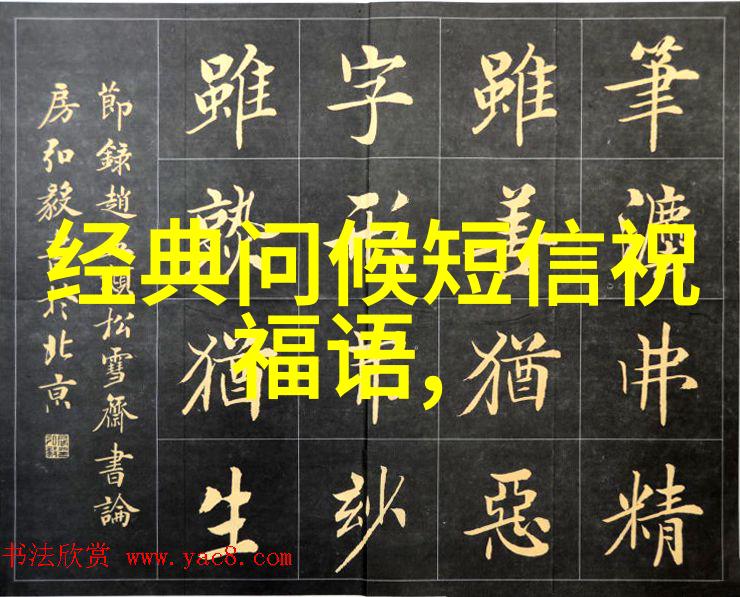 经典问候短信祝
福语,
筆灋弗精
雖善猶惡
字形弗妙
雖熟猶生
節録趙頫松雪齋書論
房弘毅書於北京
书法欣赏 www.yac8.com